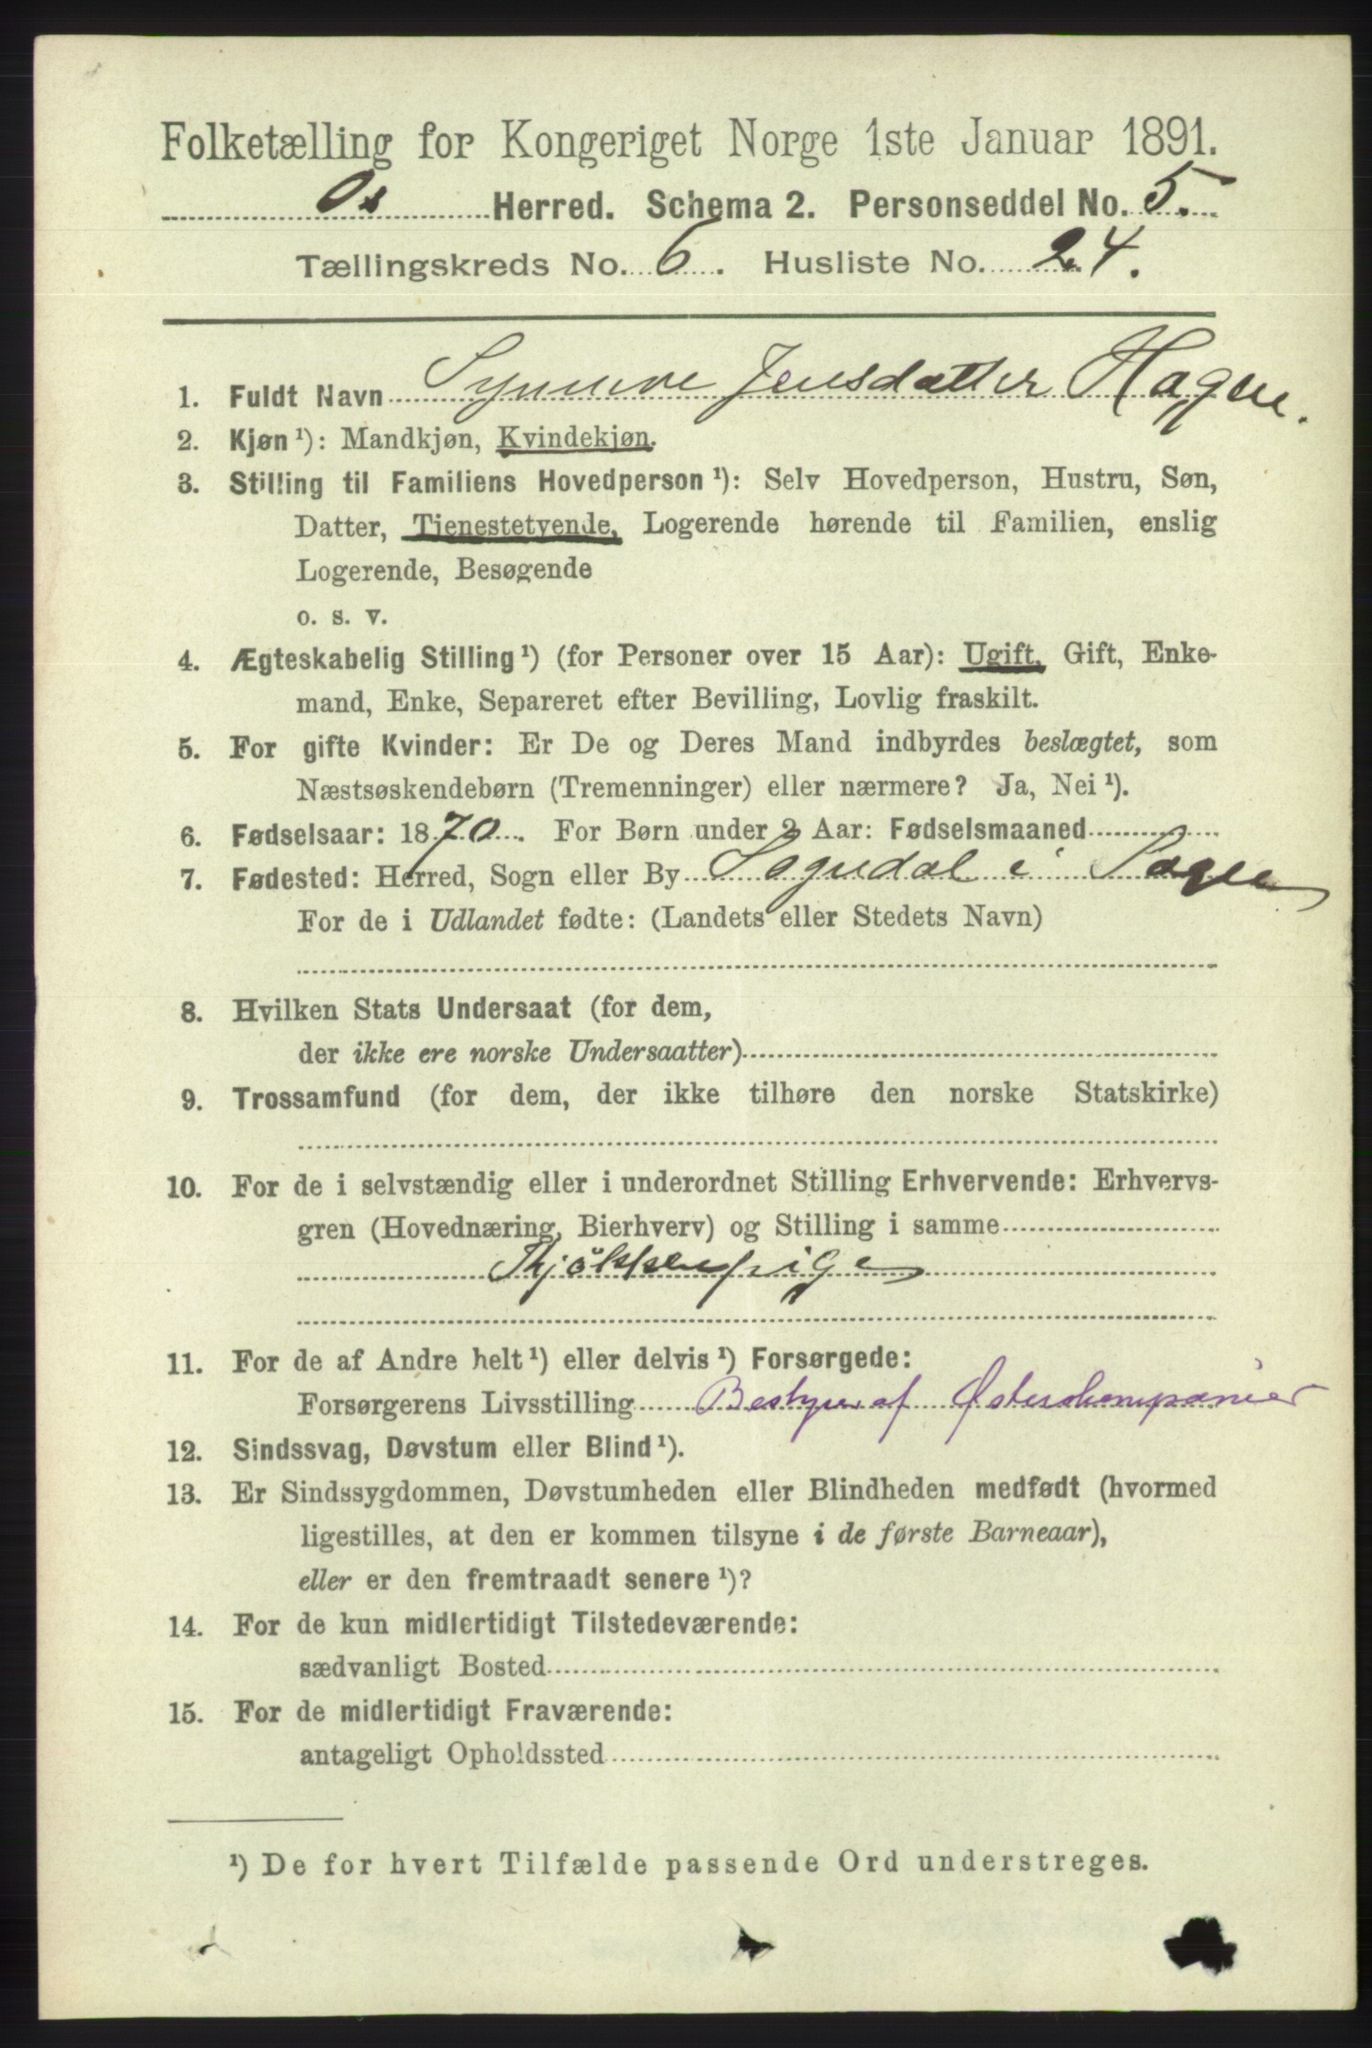 Folketælling for Kongeriget Norge 1ste Januar 1891.
Os Herred. Schema 2. Personseddel No. 5.
Tællingskreds No. 6. Husliste No. 24.
1. Fuldt Navn Synneve Jensdatter Hagen.
2. Kjøn ¹): Mandkjøn, Kvindekjøn.
3. Stilling til Familiens Hovedperson ¹): Selv Hovedperson, Hustru, Søn,
Datter, Tjenestetyende, Logerende hørende til Familien, enslig
Logerende, Besøgende
o. s. v.
4. Ægteskabelig Stilling ¹) (for Personer over 15 Aar): Ugift, Gift, Enke-
mand, Enke, Separeret efter Bevilling, Lovlig fraskilt.
5. For gifte Kvinder: Er De og Deres Mand indbyrdes beslægtet, som
Næstsøskendebørn (Tremenninger) eller nærmere? Ja, Nei ¹).
6. Fødselsaar: 1870. For Børn under 2 Aar: Fødselsmaaned
7. Fødested: Herred, Sogn eller By Sogndal i Sogn
For de i Udlandet fødte: (Landets eller Stedets Navn)
8. Hvilken Stats Undersaat (for dem,
der ikke ere norske Undersaatter)
9. Trossamfund (for dem, der ikke tilhøre den norske Statskirke)
10. For de i selvstændig eller i underordnet Stilling Erhvervende: Erhvervs-
gren (Hovednæring, Bierhverv) og Stilling i samme
Kjøkkenpige
11. For de af Andre helt ¹) eller delvis ¹) Forsørgede:
Forsørgerens Livsstilling Bestyrer af Østerskompanier
12. Sindssvag, Døvstum eller Blind ¹).
13. Er Sindssygdommen, Døvstumheden eller Blindheden medfødt (hvormed
ligestilles, at den er kommen tilsyne i de første Barneaar),
eller er den fremtraadt senere ¹)?
14. For de kun midlertidigt Tilstedeværende:
sædvanligt Bosted
15. For de midlertidigt Fraværende:
antageligt Opholdssted
¹) De for hvert Tilfælde passende Ord understreges.